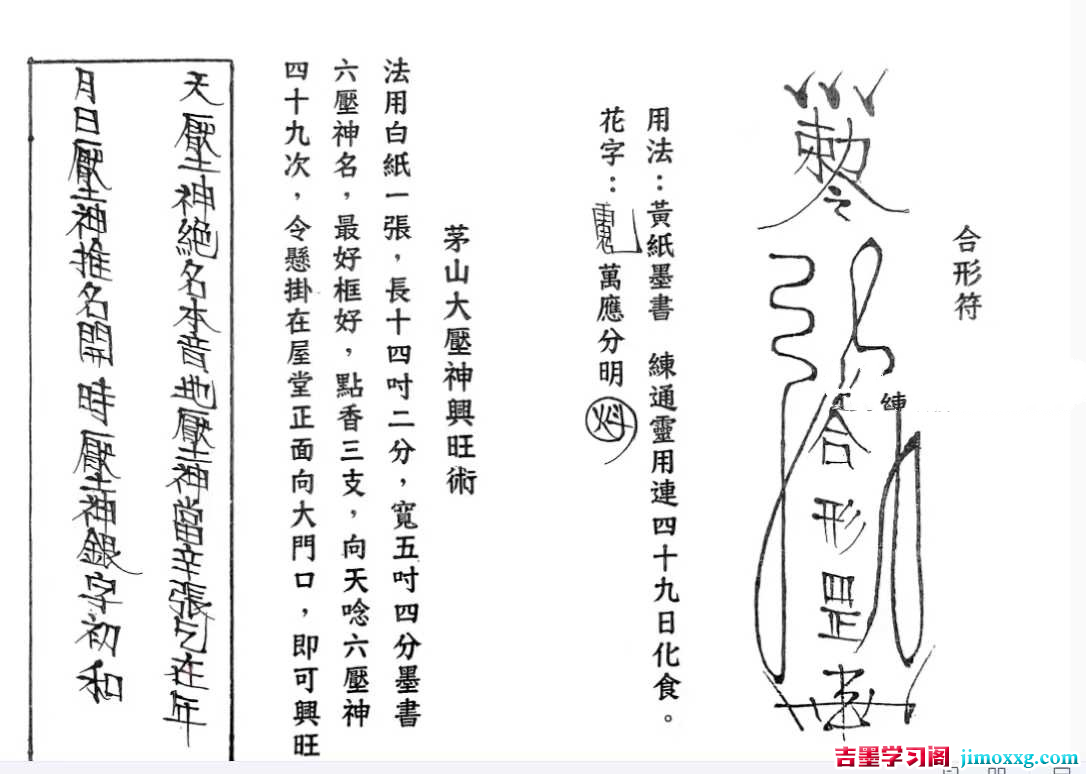 合形符
勅令
練
合形罡安
用法：黃紙墨書　練通靈用連四十九日化食。
花字：萬應分明
茅山大壓神興旺術
法用白紙一張，長十四吋二分，寬五吋四分墨書
六壓神名，最好框好，點香三支，向天唸六壓神
四十九次，令懸掛在屋堂正面向大門口，即可興旺
天壓神絕名本音地壓神當辛張乞在年
月日壓神推名開時壓神銀字初和
吉墨学习阁 jimoxxg.com